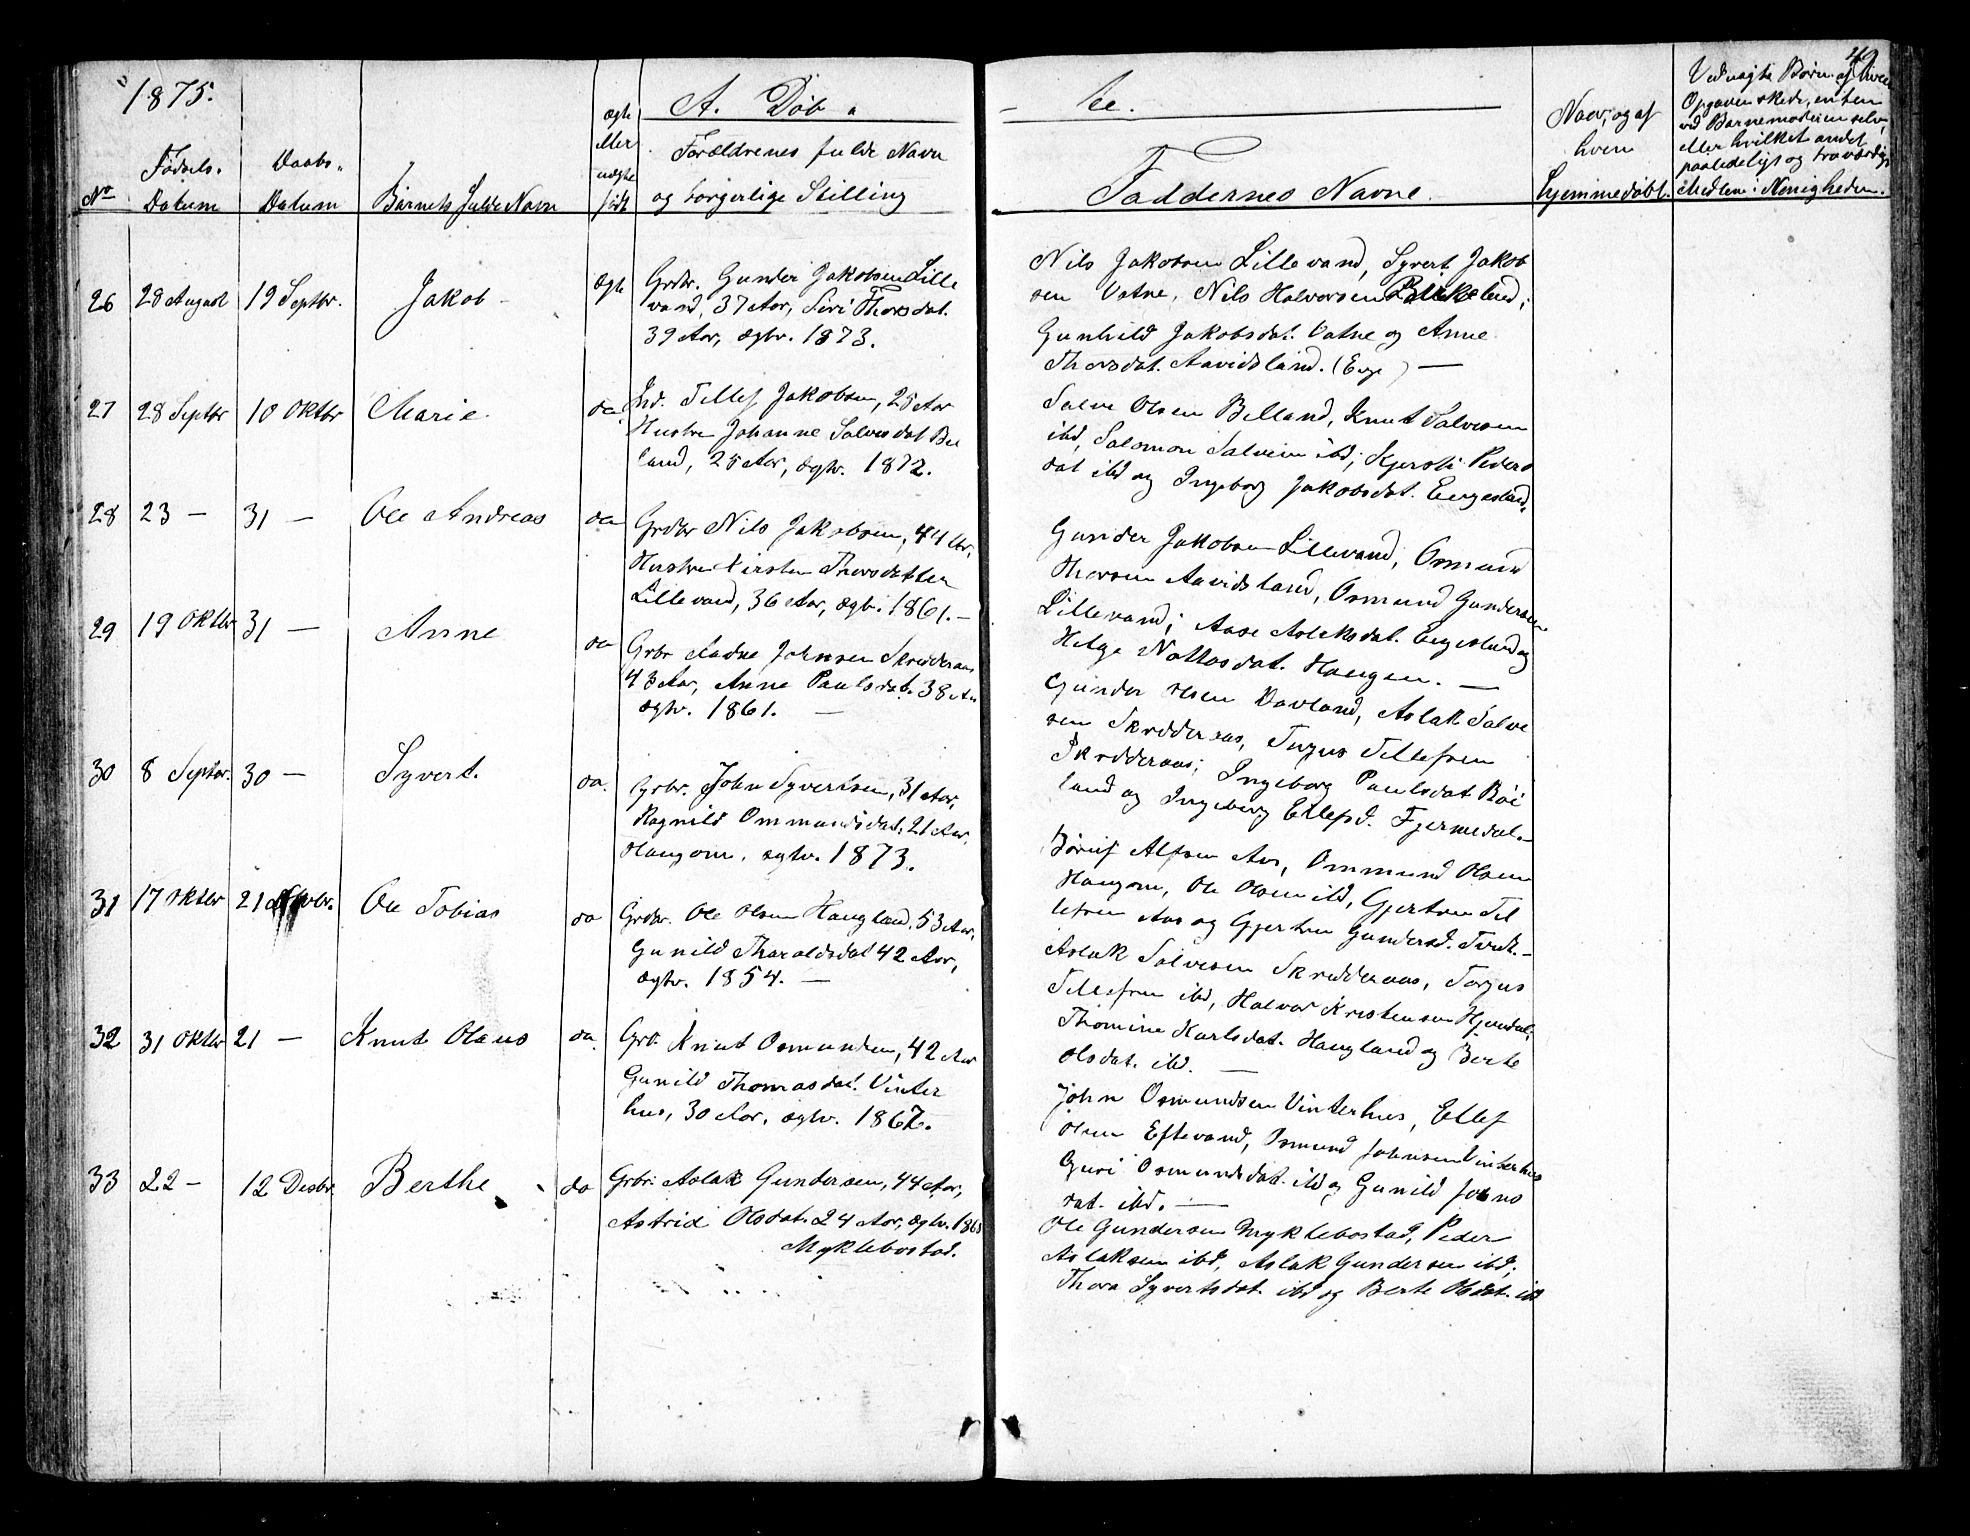 1875.
A. Døb-
te.
No
Fødsels-
Datum
Daabs-
Datum
Barnets fulde Navn
ægte
eller
uægte
født
Forældrenes fulde Navn
og borgerlige Stilling
Faddernes Navne.
Naar, og af
hvem
hjemmedøbt.
Ved uægte Børn,
Opgaven skede, enten
ved Barnemoderen selv,
eller hvilket andet
paalideligt og troværdigt
Medlem i Menigheden.
26 28 August 19 Septbr. Jakob ægte
Grdbr. Gunder Jakobsen Lille
vand, 37 Aar, Siri Thorsdat.
39 Aar, ægtv. 1873.
Nils Jakobsen Lillevand, Syvert Jakob
sen Vatne, Nils Halvorsen Birkeland,
Gunhild Jakobsdat. Vatne og Anne
Thorsdat. Aavidsland. (Enge) —
27 28 Septbr 10 Oktbr Marie do
Ind. Tellef Jakobsen, 25 Aar
Hustru Johanne Salvesdat Bel
land, 25 Aar, ægtv. 1872.
Salve Olsen Belland, Knut Salvesen
ibd, Salomon Salvesen ibd, Kjersti Peders
dat ibd og Ingeborg Jakobsdat. Engesland.
28 23 — 31 — Ole Andreas do
Grdbr Nils Jakobsen, 44 Aar,
Hustru Kirsten Thorsdatter
Lillevand, 36 Aar, ægtv. 1861. —
Gunder Jakobsen Lillevand, Osmund
Thorsen Aavidsland, Osmund Gundersen
Lillevand, Aase Aslaksdat. Engesland og
Helge Nottosdat. Haugen. —
29 19 Oktbr 31 — Anne do
Grbr Aadne Johnsen Skredderaas
43 Aar, Anne Paulsdat. 38 Aar
ægtv. 1861. —
Gunder Olsen Davland, Aslak Salve
sen Skredderaas, Torjus Tellefsen
Skredderaas, Ingeborg Paulsdat Bøi
land og Ingeborg Ellefsd. Fjermedal. —
30 8 Septbr. 30 — Syvert. do.
Grbr. John Syvertsen, 31 Aar,
Ragnild Ommundsdat. 21 Aar,
Haugom, ægtv. 1873.
Børuf Alfsen Aas, Ommund Olsen
Haugom, Ole Olsen ibd, Gjertru Tel
lefsen Aas og Gjertru Gundersd.
31 17 Oktbr 21 Novbr. Ole Tobias do
Grdbr. Ole Olsen Haugland, 53 Aar,
Gunild Tharaldsdat 42 Aar,
ægtv. 1854. —
Aslak Salvesen Skredderaas, Torjus
Tellefsen ibd, Halvor Kristensen
Thomine Karlsdat. Haugland og Berte
Olsdat. ibd. —
32 31 Oktbr 21 — Knut Olaus do.
Grb. Knut Osmundsen, 42 Aar
Gunild Thomasdat. Vinter
hus, 30 Aar, ægtv. 1867.
John Osmundsen Vinterhus, Ellef
Olsen Eftevand, Osmund Johnsen Vinterhus
Guri Osmundsdat. ibd og Gunild Johns
dat. ibd. —
33 22 — 12 Desbr. Berthe do
Grbr. Aslak Gundersen, 44 Aar,
Astrid Olsdat. 24 Aar, ægtv. 1868
Myklebostad.
Ole Gundersen Myklebostad, Peder
Aslaksen ibd, Aslak Gundersen ibd,
Thora Syvertsdat. ibd og Berte Olsdat. ibd